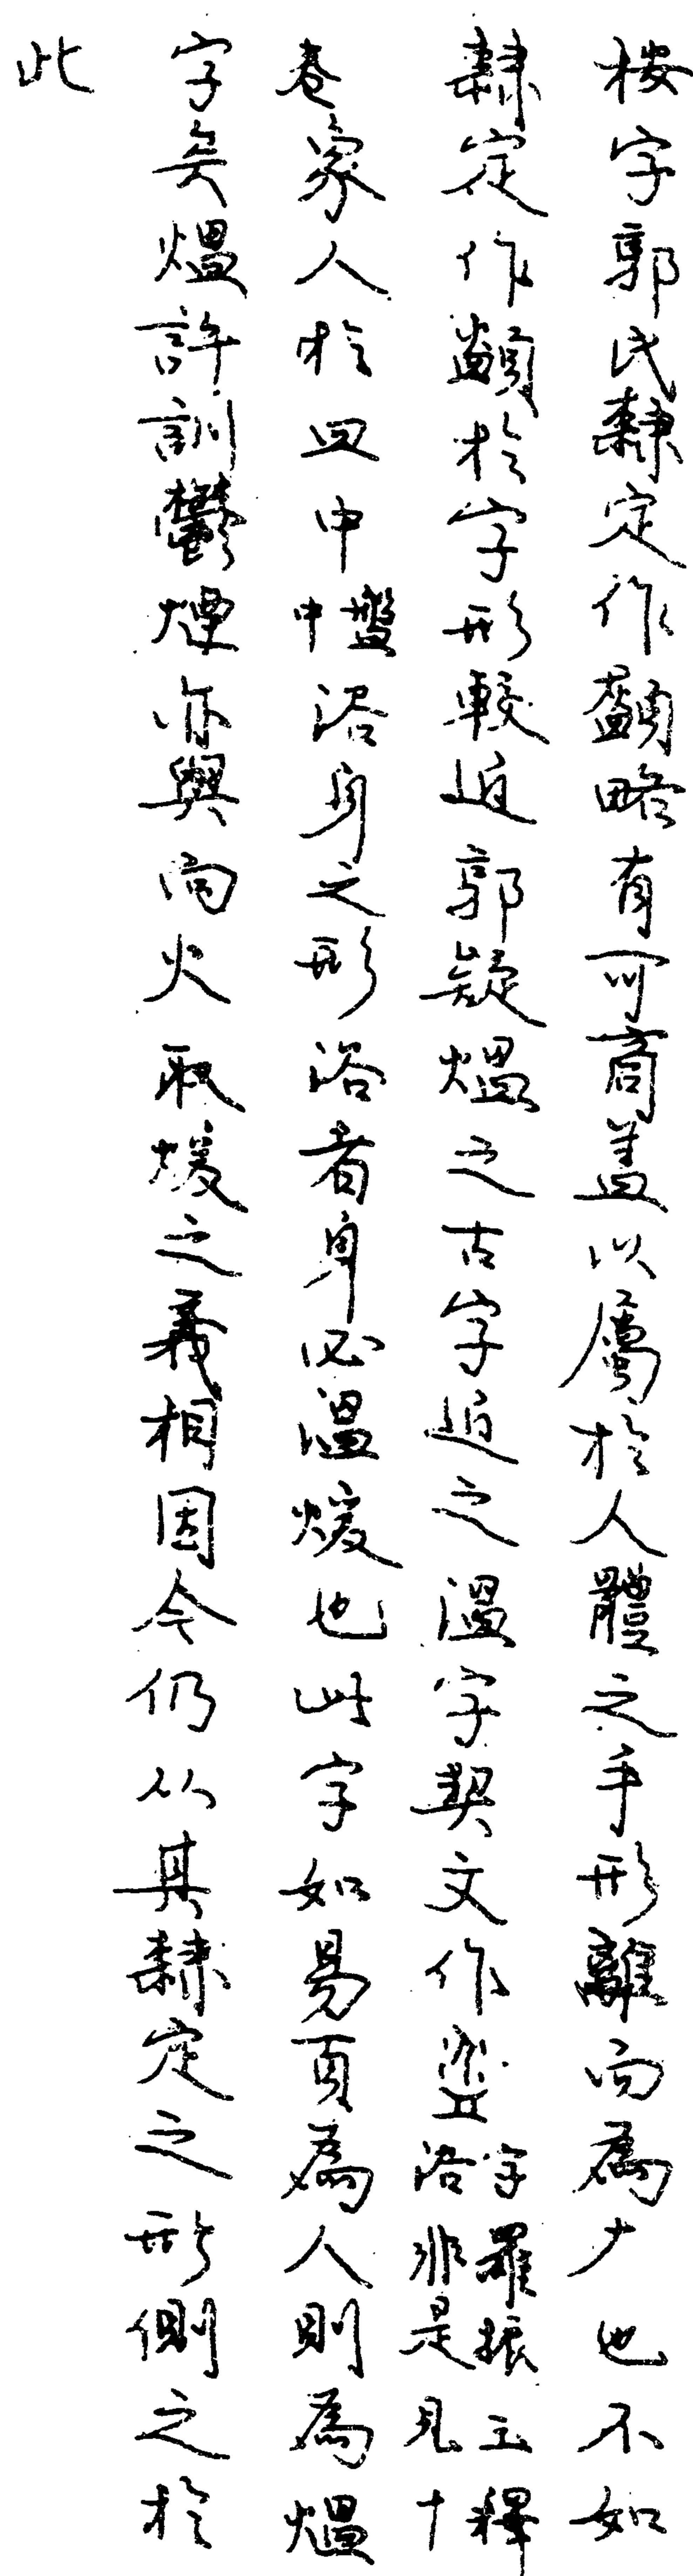 按字郭氏隸定作䫜略有可商盖以屬於人體之手形離而為ナ也不如
隸定作䫜於字形較近郭疑熅之古字近之溫字契文作字羅振玉釋浴非是見十
卷象人於皿中中盤浴身之形浴者身必溫煖也此字如易頁為人則為熅
字矣熅許訓鬱煙亦與向火取煖之義相因今仍从其隸定之形側之於
此